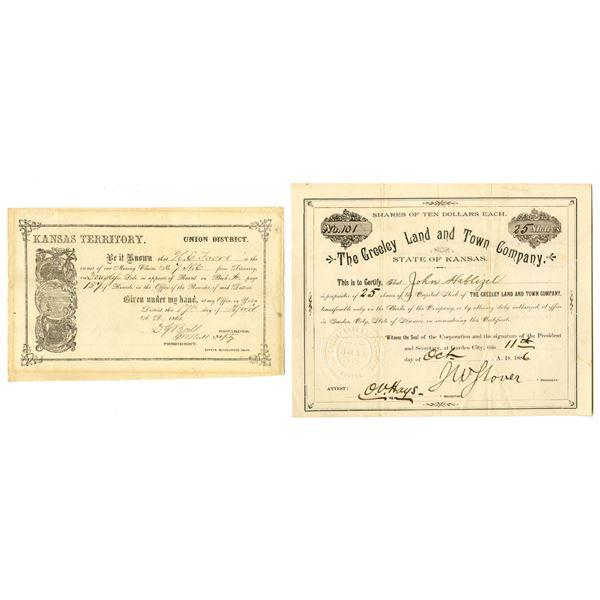 KANSAS TERRITORY. UNION DISTRICT.
Be it Known that
owner of one Mining Claim, No. 7 N.E. from Discovery,
on Lode, as appears of Record in Book page
157 of Records, in the Office of the Recorder of said District.
Given under my hand, at my Office in Union
District this 17th day of April
A. D. 1861
RECORDER.
PRESIDENT.
SHARES OF TEN DOLLARS EACH.
No. 101 25 Shares
The Greeley Land and Town Company.
STATE OF KANSAS.
This is to Certify, That John Hablizel
is proprietor of 25 shares of the Capital Stock of THE GREELEY LAND AND TOWN COMPANY,
transferable only on the Books of the Company, in by Attorney duly authorized at office
in Garden City, State of Kansas, on surrendering this Certificate.
Witness the Seal of the Corporation and the signature of the President
and Secretary, at Garden City, this 11th
day of Oct A. D. 1886
J W Stover PRESIDENT.
ATTEST: O. V. Hays SECRETARY.